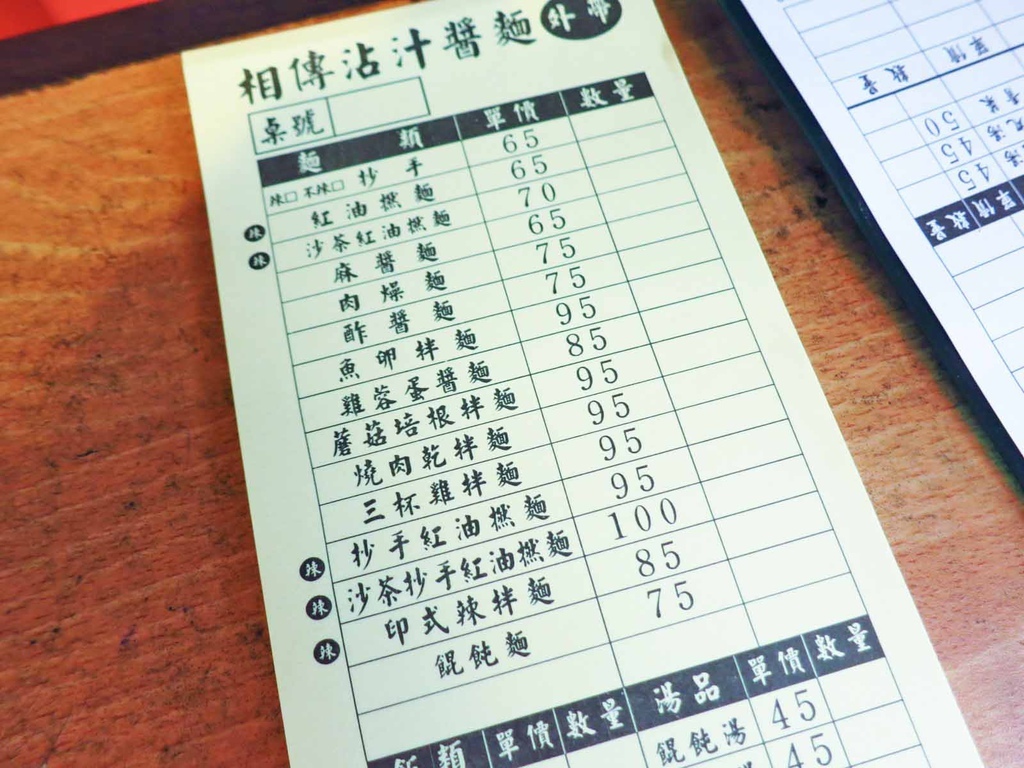 相傳沾汁醬麵 外帶
桌號
麵類 單價 數量
辣□ 不辣□ 抄手 65
辣 紅油撚麵 65
辣 沙茶紅油撚麵 70
麻醬麵 65
肉燥麵 75
酢醬麵 75
魚卵拌麵 95
雞蓉蛋醬麵 85
蘑菇培根拌麵 95
燒肉乾拌麵 95
三杯雞拌麵 95
辣 抄手紅油撚麵 95
辣 沙茶抄手紅油撚麵 100
辣 印式辣拌麵 85
餛飩麵 75
飯類 單價 數量 湯品 單價 數量
餛飩湯 45
45
單價 數量
50
湯 45
湯 45
單價 數量